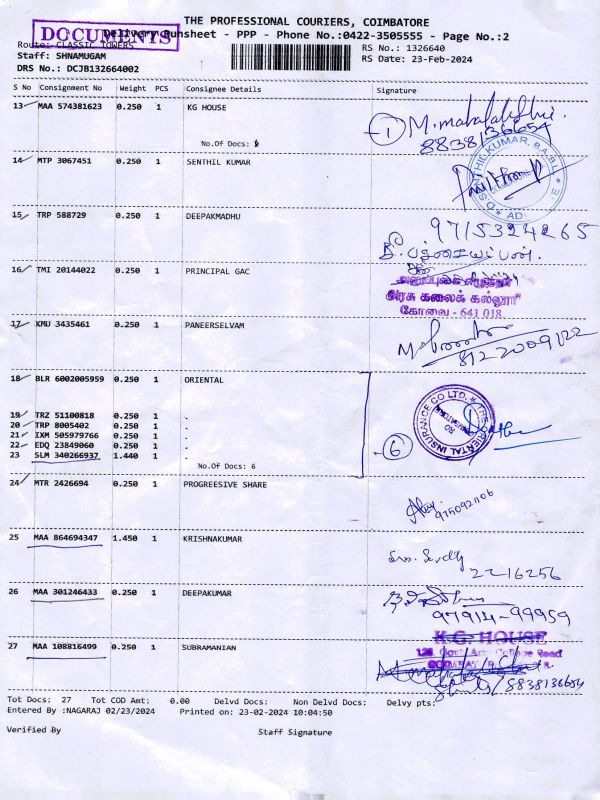 THE PROFESSIONAL COURIERS, COIMBATORE
DOCUMENTS
Delivery Runsheet - PPP - Phone No.:0422-3505555 - Page No.:2
Route: CLASSIC TOWERS RS No.: 1326640
Staff: SHNAMUGAM RS Date: 23-Feb-2024
DRS No.: DCJB132664002
S No Consignment No Weight PCS Consignee Details Signature
13 MAA 574381623 0.250 1 KG HOUSE
1 M. mahalakshmi
8838136654
No.Of Docs: 1
14 MTP 3067451 0.250 1 SENTHIL KUMAR
SENTHILKUMAR, B.A.B.L.
15 TRP 588729 0.250 1 DEEPAKMADHU
9715324265
16 TMI 20144022 0.250 1 PRINCIPAL GAC
அரசு கலைக் கல்லூரி
கோவை - 641 018.
17 KMU 3435461 0.250 1 PANEERSELVAM
8122009122
18 BLR 6002005959 0.250 1 ORIENTAL
THE ORIENTAL INSURANCE CO LTD.
19 TRZ 51100818 0.250 1 .
20 TRP 8005402 0.250 1 .
21 IXM 505979766 0.250 1 .
22 EDQ 23849060 0.250 1 .
23 SLM 340266937 1.440 1 .
6
No.Of Docs: 6
24 MTR 2426694 0.250 1 PROGREESIVE SHARE
9750921106
25 MAA 864694347 1.450 1 KRISHNAKUMAR
22-16256
26 MAA 301246433 0.250 1 DEEPAKUMAR
97914-99959
K.G. HOUSE
27 MAA 108816499 0.250 1 SUBRAMANIAN
126, Govt Arts College Road
8838136654
Tot Docs: 27 Tot COD Amt: 0.00 Delvd Docs: Non Delvd Docs: Delvy pts:
Entered By :NAGARAJ 02/23/2024 Printed on: 23-02-2024 10:04:50
Verified By Staff Signature